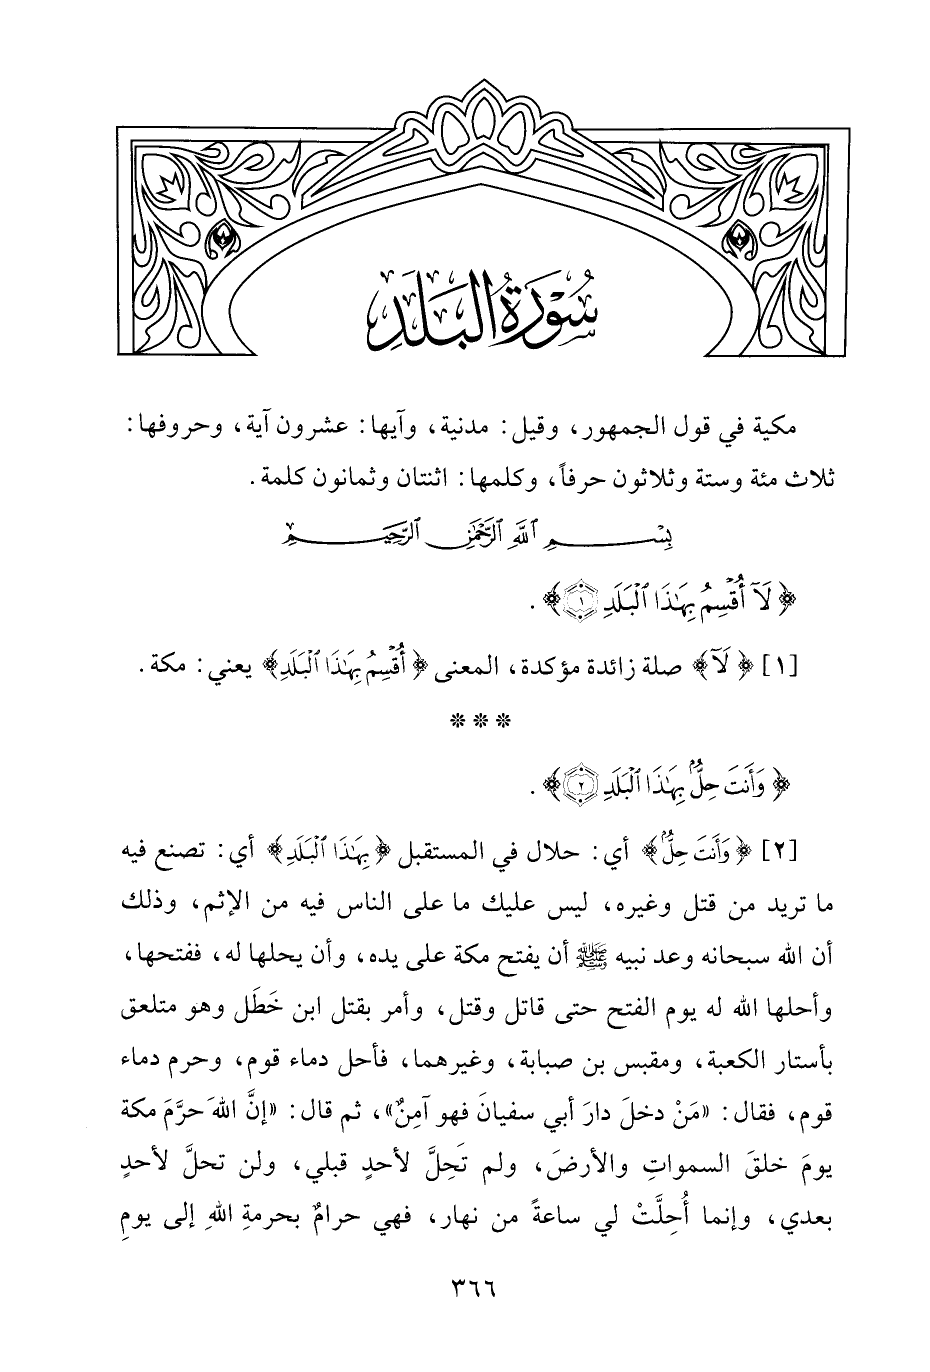 سُوْرَةُ الْبَلَدِ
مكية في قول الجمهور، وقيل: مدنية، وآيها: عشرون آية، وحروفها:
ثلاث مئة وستة وثلاثون حرفاً، وكلمها: اثنتان وثمانون كلمة.
بِسْمِ ٱللَّهِ ٱلرَّحْمَٰنِ ٱلرَّحِيمِ
﴿لَآ أُقْسِمُ بِهَٰذَا ٱلْبَلَدِ ١﴾.
[١] ﴿لَآ﴾ صلة زائدة مؤكدة، المعنى ﴿أُقْسِمُ بِهَٰذَا ٱلْبَلَدِ﴾ يعني: مكة.
***
﴿وَأَنتَ حِلٌّۢ بِهَٰذَا ٱلْبَلَدِ ٢﴾.
[٢] ﴿وَأَنتَ حِلٌّۢ﴾ أي: حلال في المستقبل ﴿بِهَٰذَا ٱلْبَلَدِ﴾ أي: تصنع فيه
ما تريد من قتل وغيره، ليس عليك ما على الناس فيه من الإثم، وذلك
أن الله سبحانه وعد نبيه ﷺ أن يفتح مكة على يده، وأن يحلها له، ففتحها،
وأحلها الله له يوم الفتح حتى قاتل وقتل، وأمر بقتل ابن خَطَل وهو متلعق
بأستار الكعبة، ومقبس بن صبابة، وغيرهما، فأحل دماء قوم، وحرم دماء
قوم، فقال: «مَنْ دخلَ دارَ أبي سفيانَ فهو آمِنٌ»، ثم قال: «إنَّ اللهَ حرَّمَ مكة
يومَ خلقَ السمواتِ والأرضَ، ولم تَحِلَّ لأحدٍ قبلي، ولن تحلَّ لأحدٍ
بعدي، وإنما أُحِلَّتْ لي ساعةً من نهار، فهي حرامٌ بحرمةِ اللهِ إلى يومِ
٣٦٦